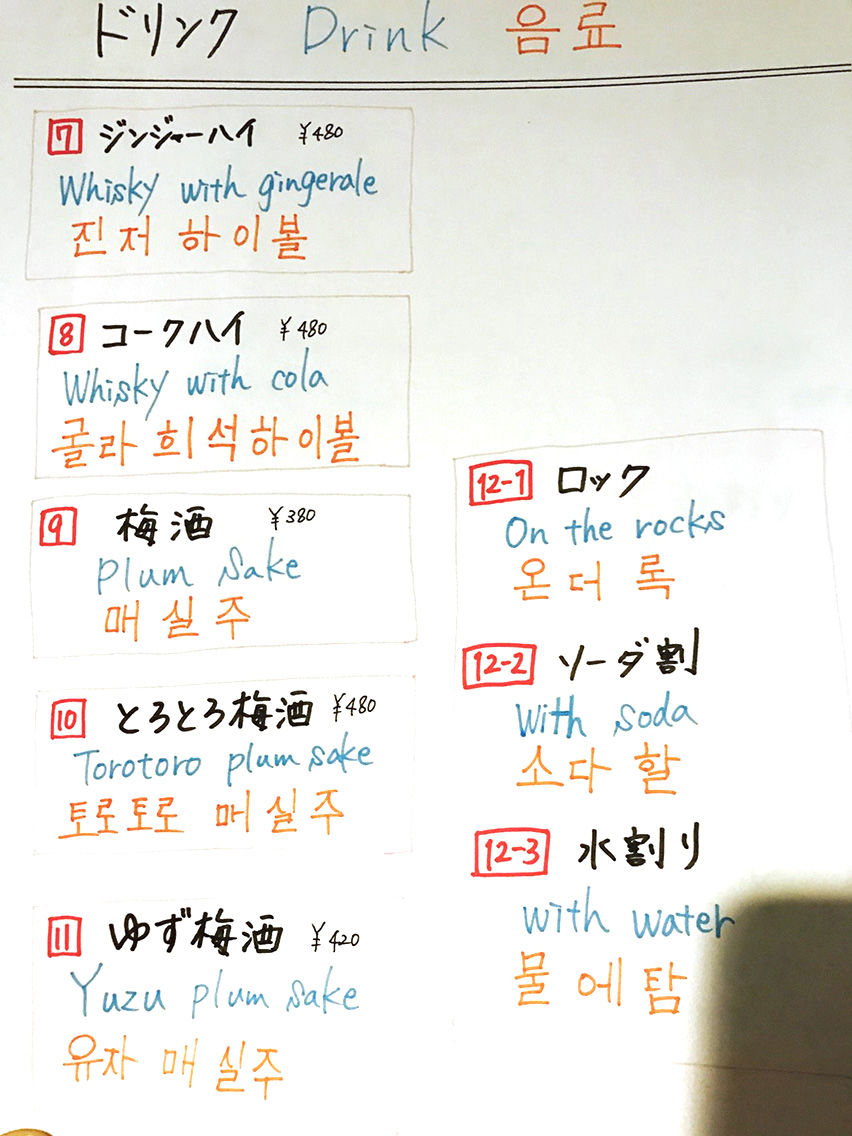 ドリンク Drink 음료
7 ジンジャーハイ ¥480
Whisky with gingerale
진저 하이볼
8 コークハイ ¥480
Whisky with cola
굴라 희석하이볼
9 梅酒 ¥380
Plum sake
매실주
10 とろとろ梅酒 ¥480
Torotoro plum sake
토로토로 매실주
11 ゆず梅酒 ¥420
Yuzu plum sake
유자 매실주
12-1 ロック
On the rocks
온더록
12-2 ソーダ割
With soda
소다할
12-3 水割り
with water
물에탐